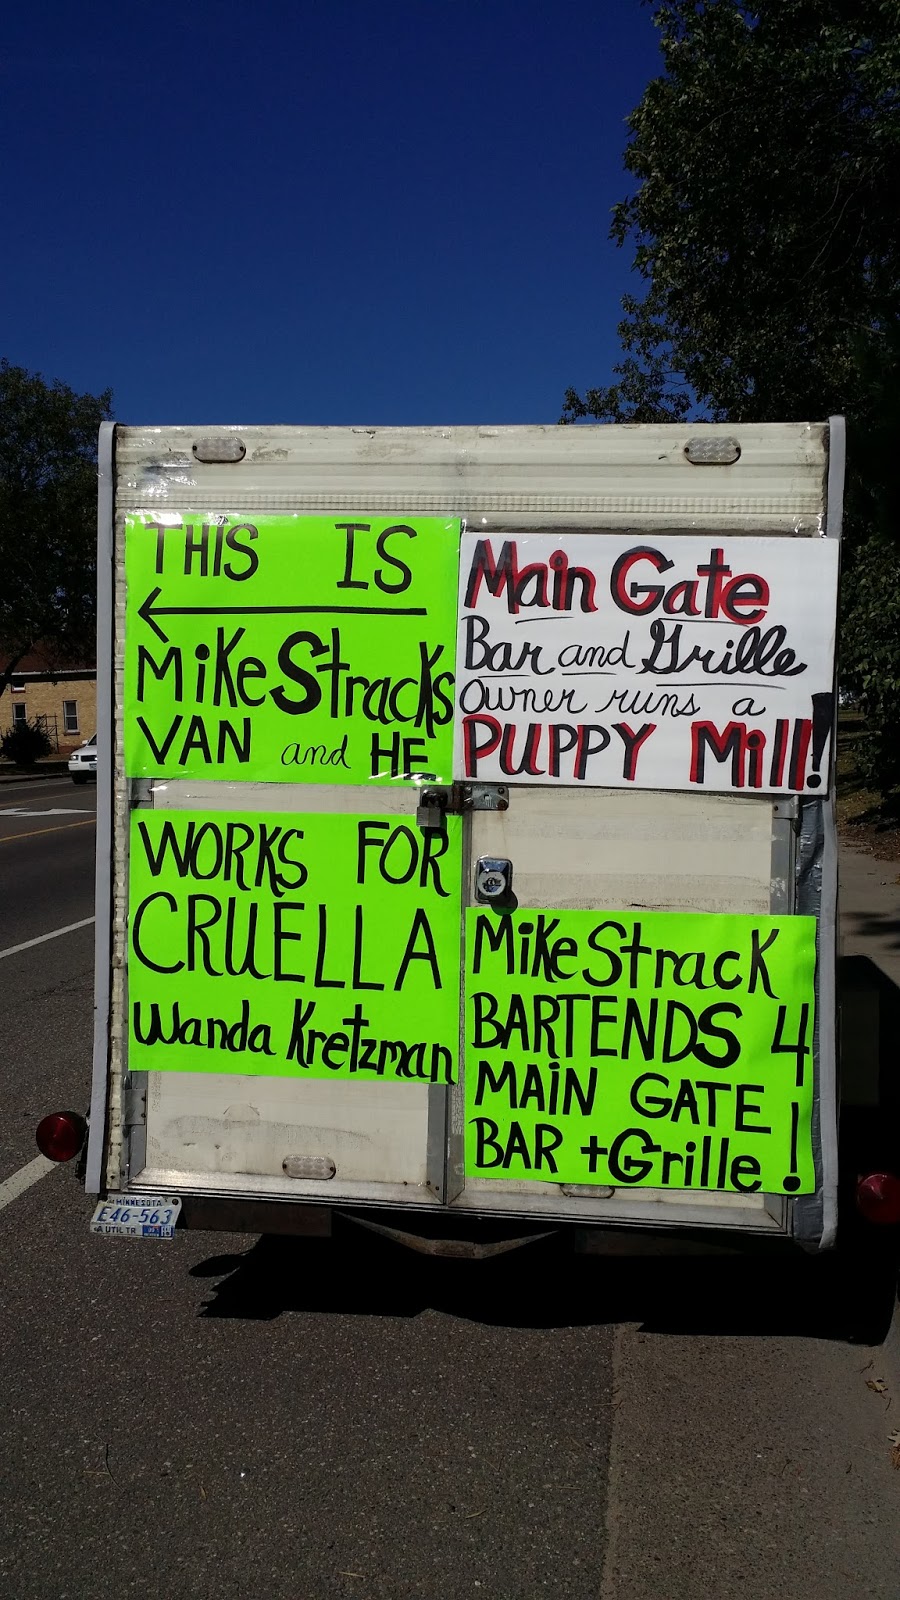 THIS IS
Mike Stracks
VAN and HE
WORKS FOR
CRUELLA
Wanda Kretzman
Main Gate
Bar and Grille
owner runs a
PUPPY Mill!
Mike Strack
BARTENDS 4
MAIN GATE
BAR + Grille!
MINNESOTA
E46-563